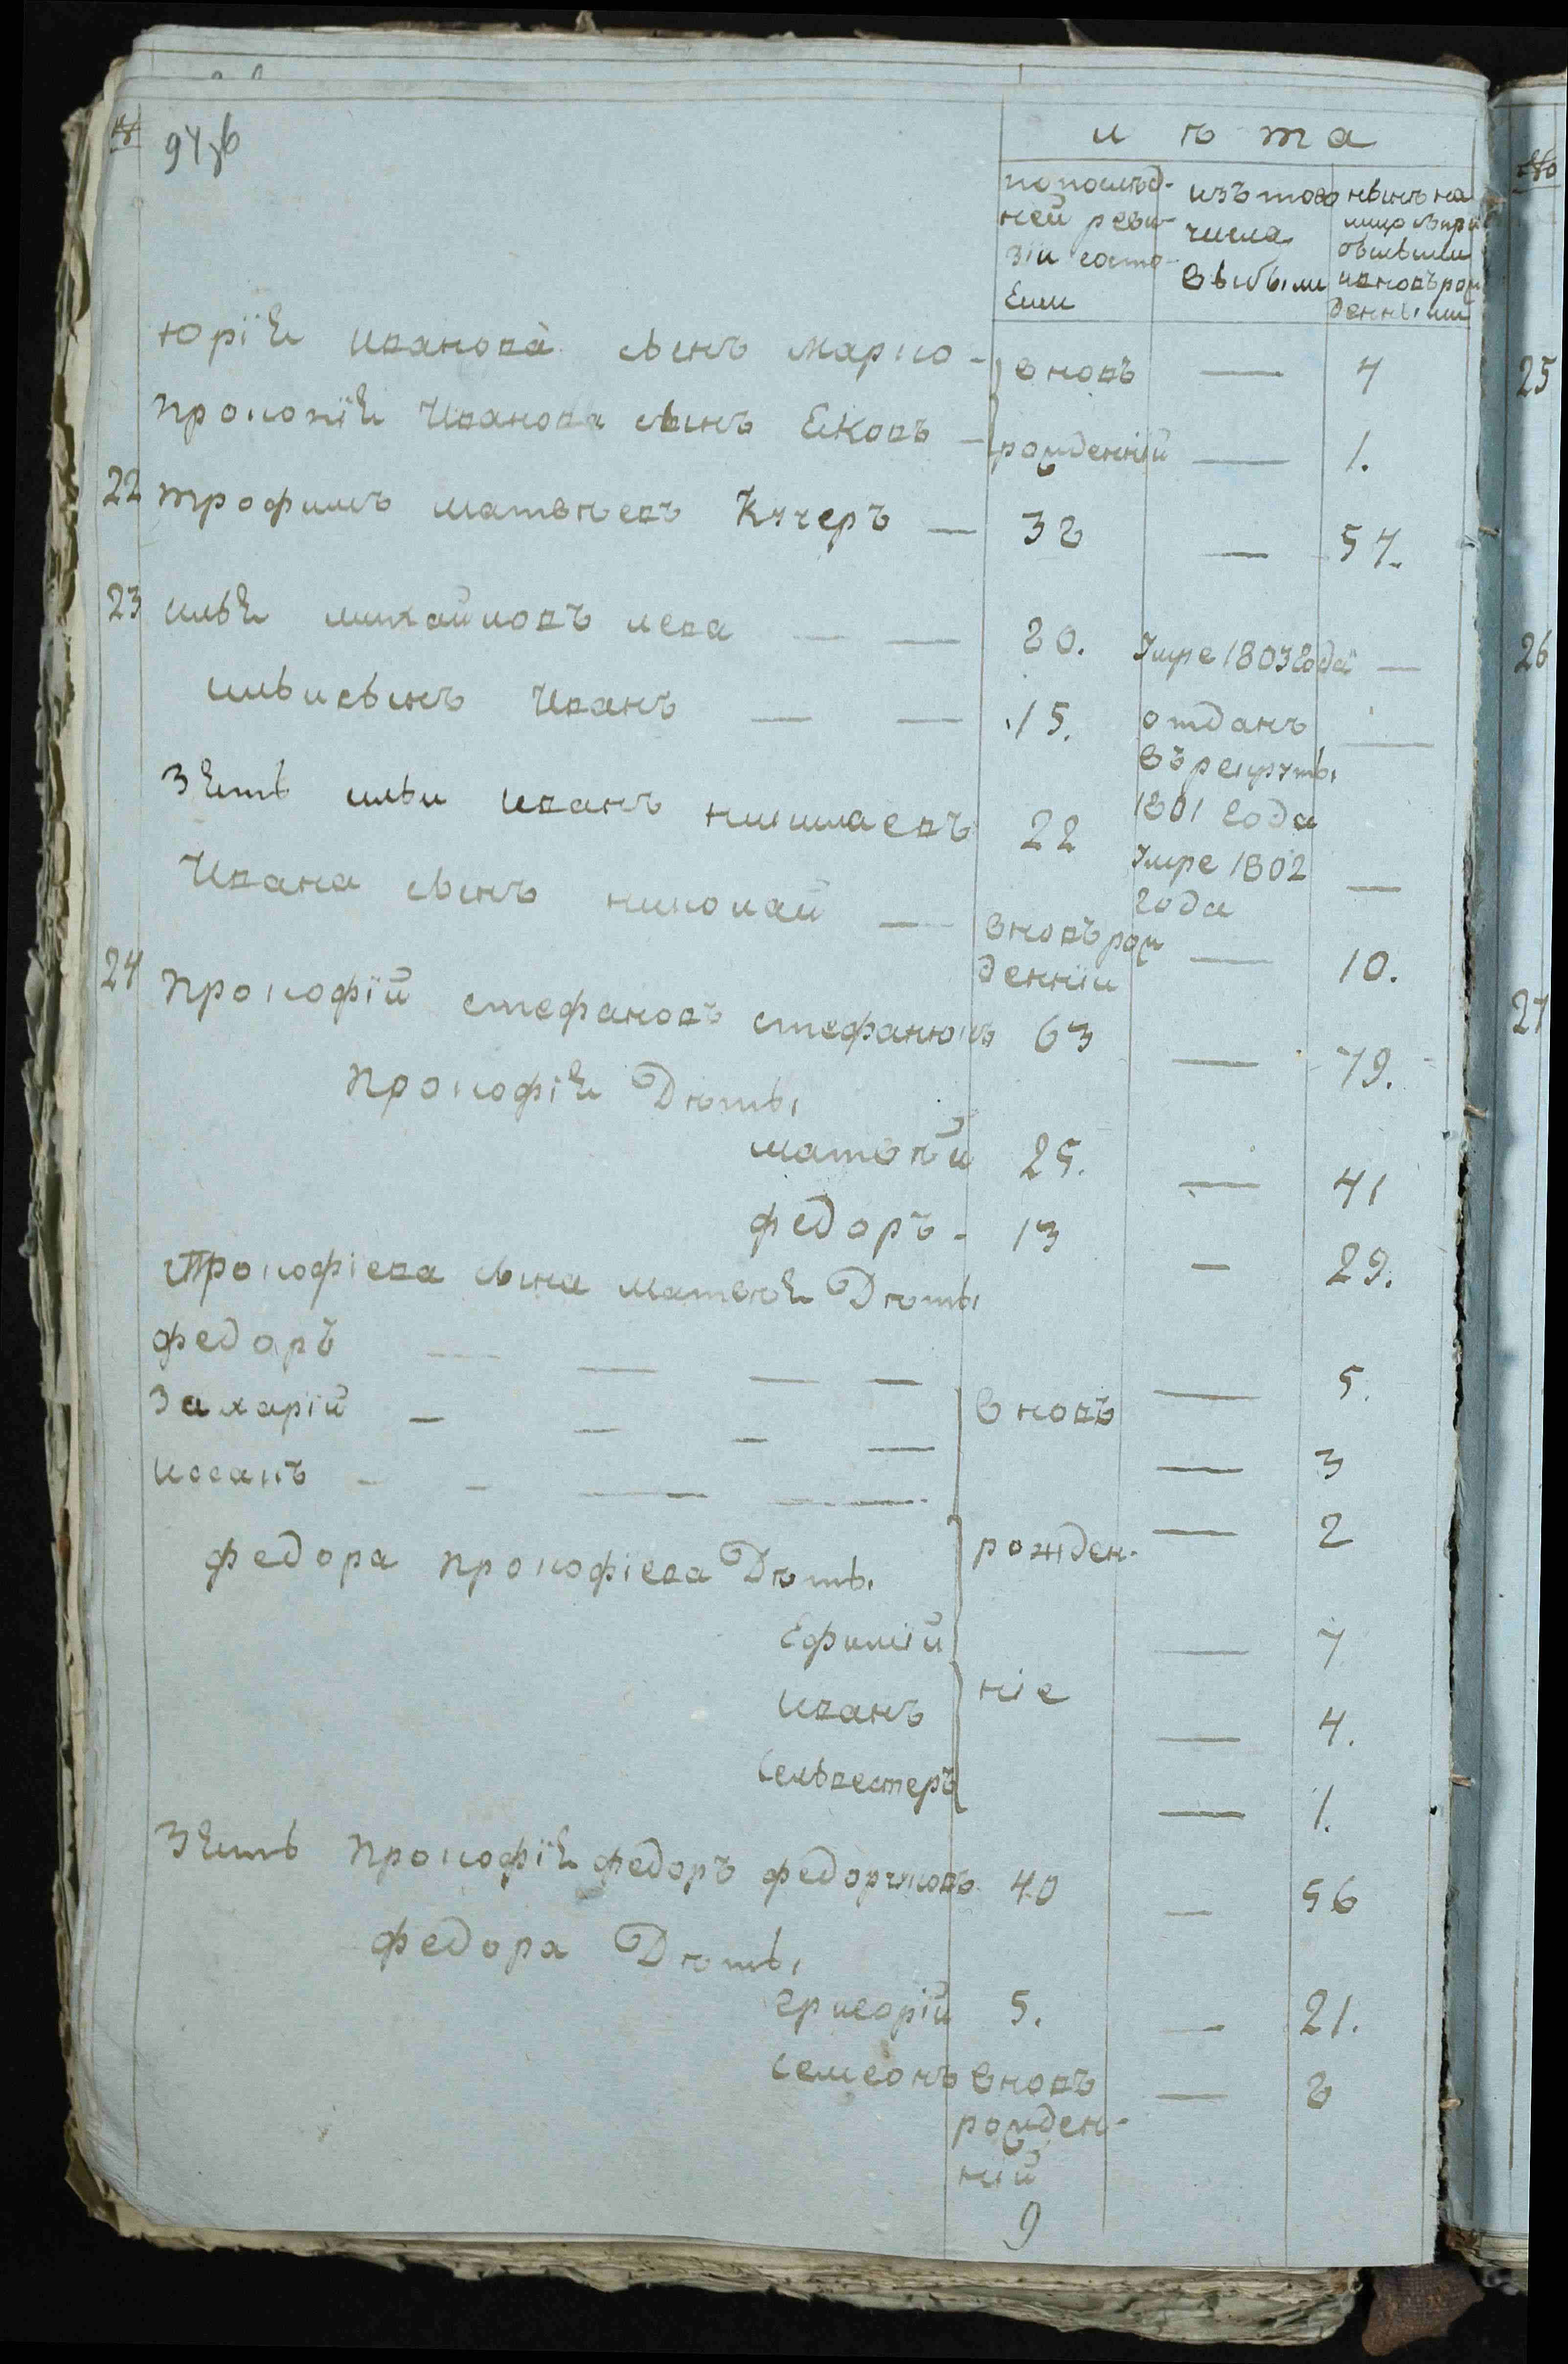 № 94 зв
лѣта
по послѣд-
ней реви-
зіи состо-
Яли
изъ того
числа
выбыли
нынѣ на
лицо съ при
былыми
и вновь рож
денными
Юрія Иванова сынъ Марко - вновь — 4
Прокопія Иванова сынъ Яковъ - рожденній — 1.
22 Трофимъ Матвѣевъ Кучеръ — 38 — 54.
23 Илья Михайловъ Лева — — 80. Умре 1803 года —
Ильи сынъ Иванъ — — 15. отданъ —
въ рекруты
1801 года
Зять Ильи Иванъ Николаевъ 22 Умре 1802 —
года
Ивана сынъ Николай — вновь рож
денній — 10.
24 Прокофій Стефановъ Стефанюкъ 63 — 79.
Прокофія Дѣты
Матвѣй 25. — 41
Федоръ - 13 — 29.
Прокофіева сына Матвѣя Дѣты
Федоръ — — — — — 5.
Захарій — — — — вновь — 3
Иссакъ - - — — — 2
Федора Прокофіева Дѣты рожден-
Ефимій — 7
Иванъ ніе — 4.
Селвестеръ — 1.
Зять Прокофія Федоръ Федорчуковъ 40 — 56
Федора Дѣты
Григорій 5. — 21.
Семеонъ вновь — 8
рожден-
ній
9
№
25
26
27